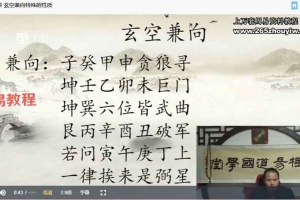 玄空兼向特殊的性质
上万老网易资料教程
www.265zhouyiw.c
玄空兼向
兼向:
子癸甲申贪狼寻
坤壬乙卯未巨门
坤巽六位皆武曲
艮丙辛酉丑破军
若问寅午庚丁上
一律挨来是弼星
易教程
0:43
字幕
堂學國道易